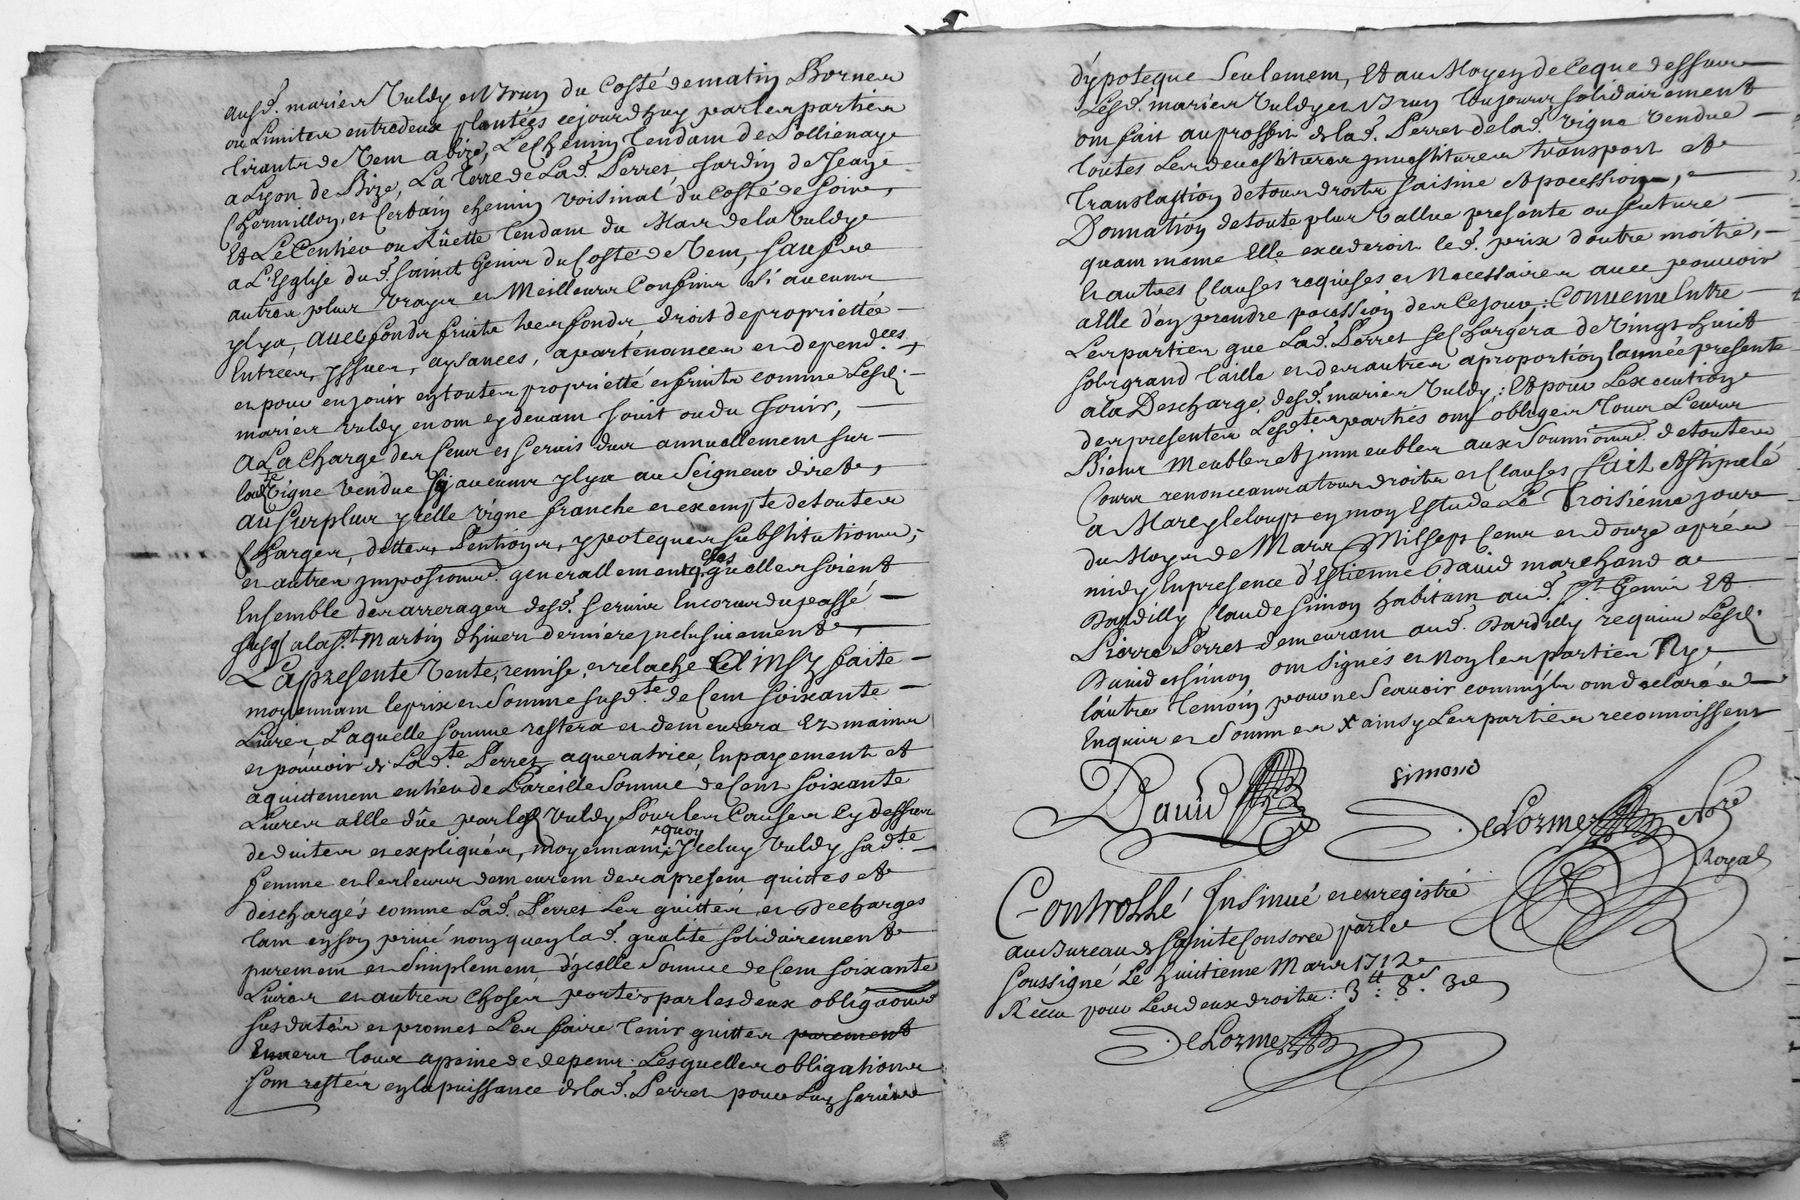 ausd. mariez Vuldy et Brun du Costé de matin Bornes
ou Limites entredeux plantées cejourdhuy par les parties
tirants de Vent a bize, Le Chemin tendant de Sollienay
a Lyon de Bize, La terre de Lad. Perret, Jardin de Jean
Chermillon, et Certain chemin voisinal du Costé de soir,
Et Le Centier ou Rûette tendant du Mas de la Vuldy
a L'Esglise dud. saint Genis du Costé de Vent, sauf ses
autres plus vrays et Meilleurs Confins si aucuns
ylya, avec fonds fruits tresfonds, droit de propriettée
Entrées, yssues, aysances, apartenances et depend.ces
et pour en jouir en toutes proprietté et fruits comme Lesd.
mariez Vuldy en ont cy devant jouit ou du Jouir,
A La Charge des Cens et servis dus annuellement sur
lad.te Vigne vendue sy aucuns ylya au Seigneur direct,
au surplus ycelle vigne franche et exempte de toutes
Charges, dettes, pentions, ypoteques substitutions,
et autres impositions generallement qlcs quelles soient
Ensemble des arrerages desd. servis Encourus du passé
jusq. a la St Martin d'hiver derniere inclusivement,
La presente Vente, remise, et relache Est insy faite
moyennant le prix et Somme susd.te de Cent soixante
Livres Laquelle somme restera et demeurera Ez mains
et pouvoir de Lad.te Perret aqueratrice, En payement et
aquittement entier de Pareille Somme de Cent soixante
Livres a Elle dûe par led. Vuldy Pour les Causes Cy dessus
deduites et expliquées, moyennant quoy Iceluy Vuldy sad.te
femme et les leurs demeurent des apresent quittes et
deschargés comme Lad. Perret Les quitte et Decharges
tant en son privé nom que en lad. qualite solidairement
purement et Simplement d'ycelle Somme de Cent soixante
Livres et autres Choses portés par les deux obligaons
susdatés et promet Les faire tenir quittes purement
Envers tous apeine de depens. Lesquelles obligations
sont restés en la puissance de lad. Perret pour Luy servire
d'ypoteque Seulement, Et au Moyen de Ce que dessus
Lesd. mariez Vuldy et Brun toujours solidairement
ont fait au proffit de lad. Perret de lad. vigne vendue
toutes Les devestitures investitures transport et
translation de tous droits saisine et pocession,
Donnation de toute plus Vallue presente ou future
quant même Elle excederoit led. prix d'outre moitié,
Et autres Clauses requises et Necessaires avec pouvoir
a Elle d'en prendre pocession des Ce jour; Convenu Entre
Les parties que Lad. Perret se Chargera de Vingt huit
sols grand taille et des autres a proportion lannée presente
a la Descharge desd. mariez Vuldy; Et pour L'execution
des presentes Lesd.tes parties ont obliger tous Leurs
Biens Meubles et immeubles aux Soumions de toutes
Cours renonceans a tous droits et Clauses fait et stipulé
a Marcy le loup en mon Estude Le Troisiéme jour
du Moys de Mars Mil sept Cens et douze aprés
midy En presence d'Estienne David marchand a
Dardilly Claude Simon habitant aud. St Genis Et
Pierre Perret demeurant aud. Dardilly requis Lesd.
David et Simon ont signés et Non les parties Ny
l'autre temoin pour ne Scavoir comm'ils ont declarés
Enquis et Sommés x ainsy Les parties reconnoissent
David
simond
DeLorme Nre
Royal
Controllé Insinué et enregistré
au Bureau de sainte Consorce par le
soussigné Le huitieme Mars 1712
Receu pour Les deux droits: 3tt: 8s. 3d
DeLorme